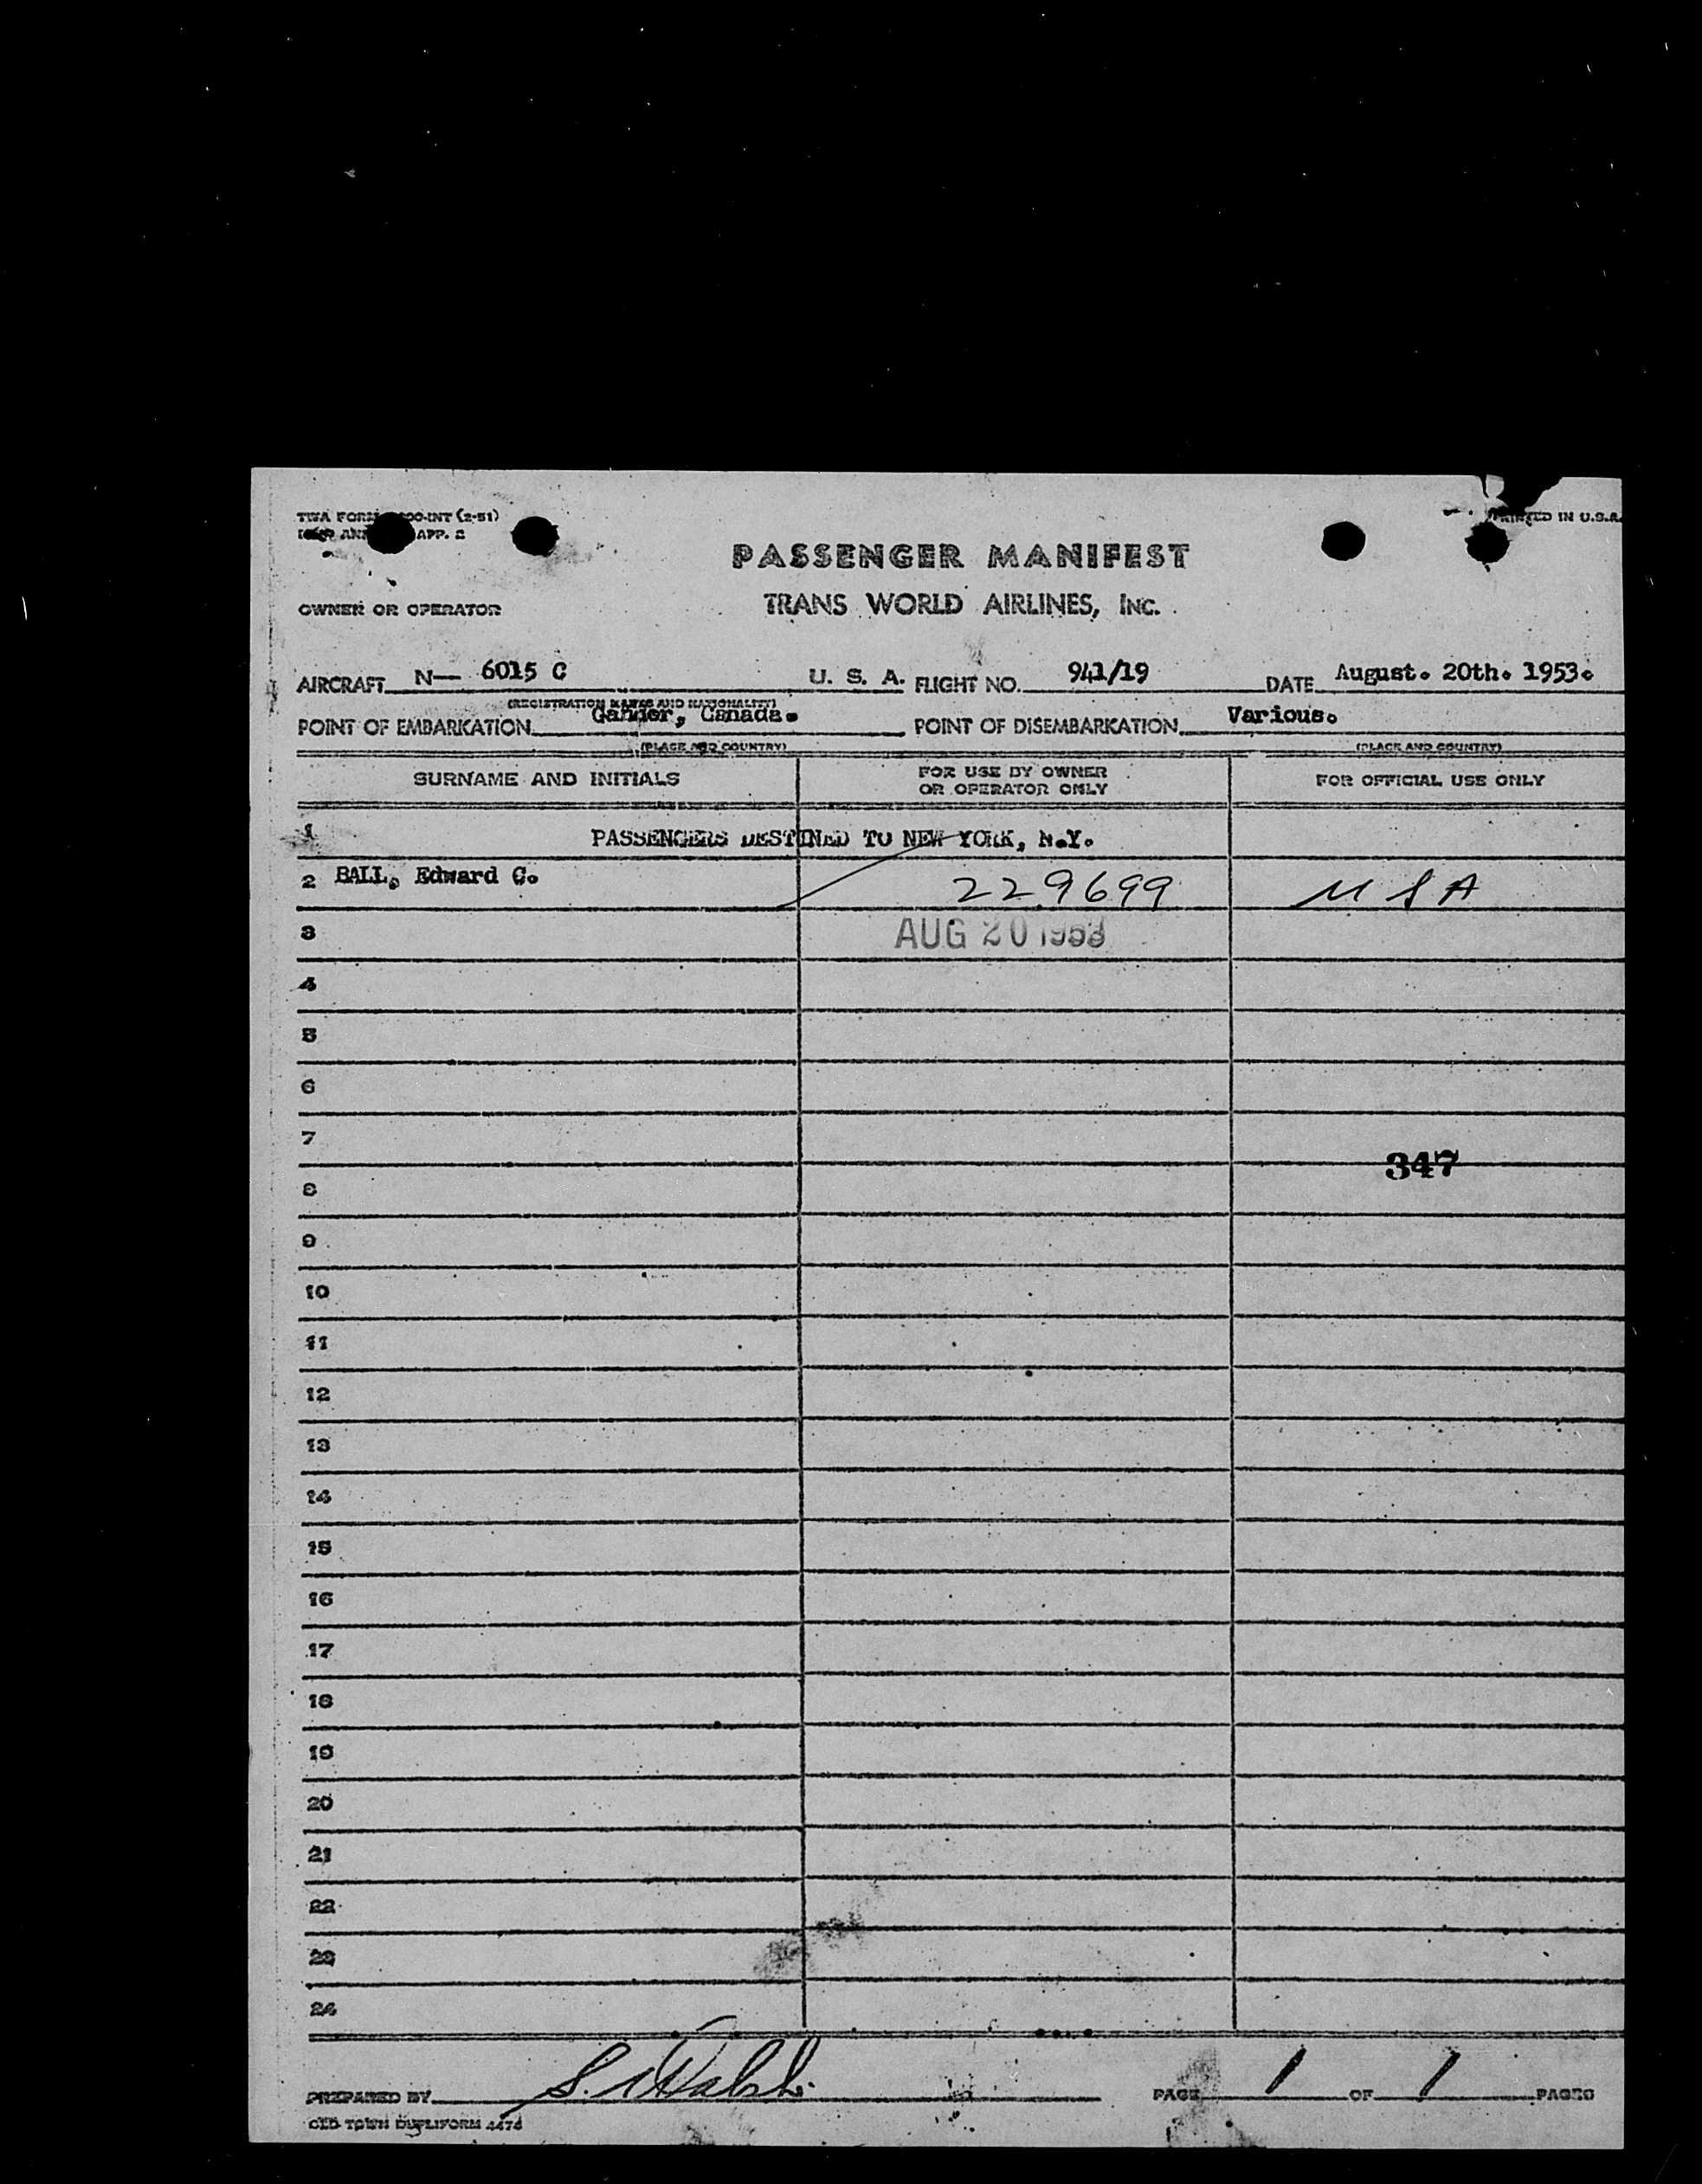 TWA FORM 00-INT (2-51)
PRINTED IN U.S.A.
APP. 2
PASSENGER MANIFEST
OWNER OR OPERATOR TRANS WORLD AIRLINES, INC.
AIRCRAFT N— 6015 C U. S. A. FLIGHT NO. 941/19 DATE August. 20th. 1953.
(REGISTRATION MARKS AND NATIONALITY)
POINT OF EMBARKATION Gander, Canada. POINT OF DISEMBARKATION Various.
(PLACE AND COUNTRY) (PLACE AND COUNTRY)
SURNAME AND INITIALS FOR USE BY OWNER OR OPERATOR ONLY FOR OFFICIAL USE ONLY
1 PASSENGERS DESTINED TO NEW YORK, N.Y.
2 BALL, Edward G. 229699 USA
3 AUG 20 1953
4
5
6
7
347
8
9
10
11
12
13
14
15
16
17
18
19
20
21
22
23
24
PREPARED BY S. Walsh PAGE 1 OF 1 PAGES
OLD TOWN DUPLIFORM 447d